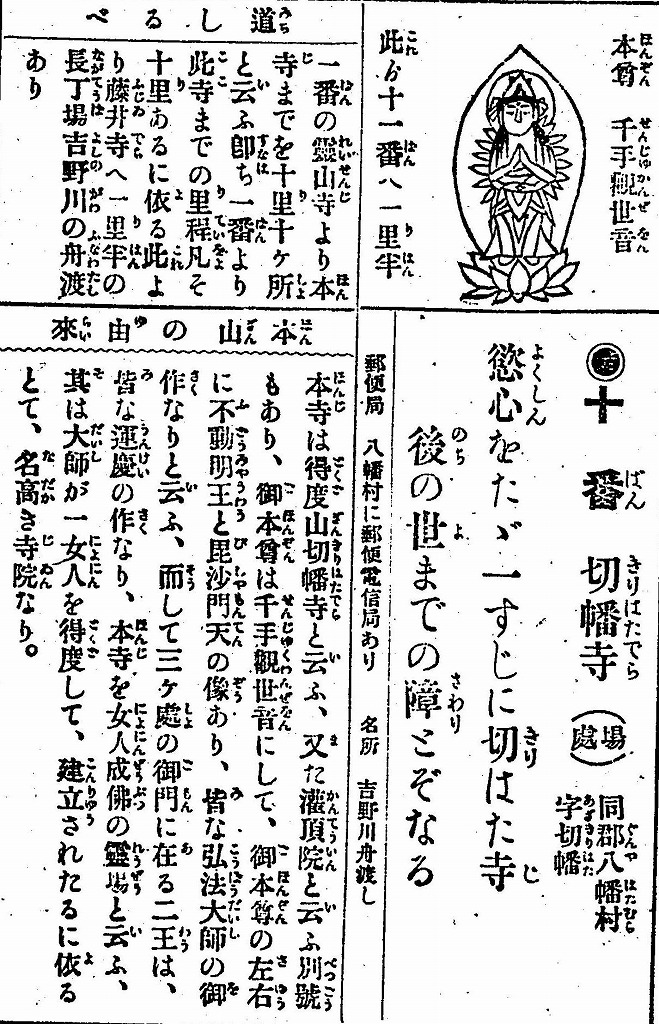 本尊 千手觀世音
此ゟ十一番八一里半
十番 切幡寺 (場處) 同郡八幡村
字切幡
慾心をたゞ一すじに切はた寺
後の世までの障とぞなる
郵便局 八幡村に郵便電信局あり 名所 吉野川舟渡し
道しるべ
一番の靈山寺より本
寺までを十里十ヶ所
と云ふ卽ち一番より
此寺までの里程凡そ
十里あるに依る此よ
り藤井寺へ一里半の
長丁場吉野川の舟渡
あり
本山の由來
本寺は得度山切幡寺と云ふ、又た灌頂院と云ふ別號
もあり、御本尊は千手觀世音にして、御本尊の左右
に不動明王と毘沙門天の像あり、皆な弘法大師の御
作なりと云ふ、而して三ヶ處の御門に在る二王は、
皆な運慶の作なり、本寺を女人成佛の靈場と云ふ、
其は大師が一女人を得度して、建立されたるに依る
とて、名高き寺院なり。